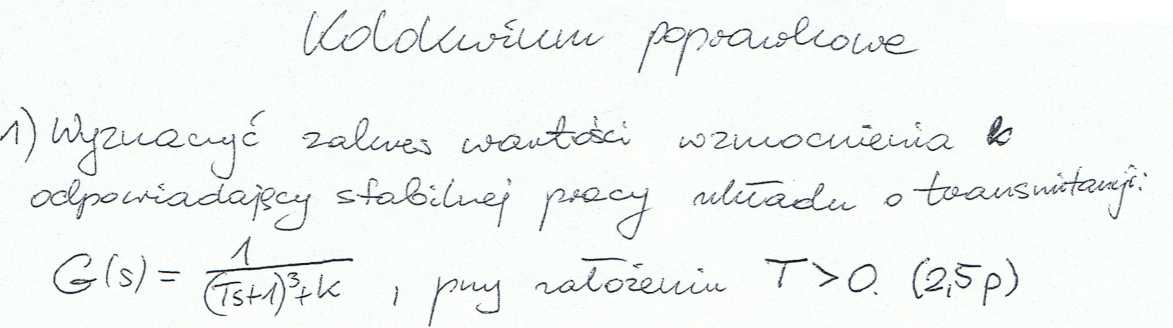 Kolokwium poprawkowe
1) Wyznaczyć zakres wartości wzmocnienia k
odpowiadający stabilnej pracy układu o transmitancji:
G(s) = 1/((Ts+1)³+k) , przy założeniu T>0. (2,5p)